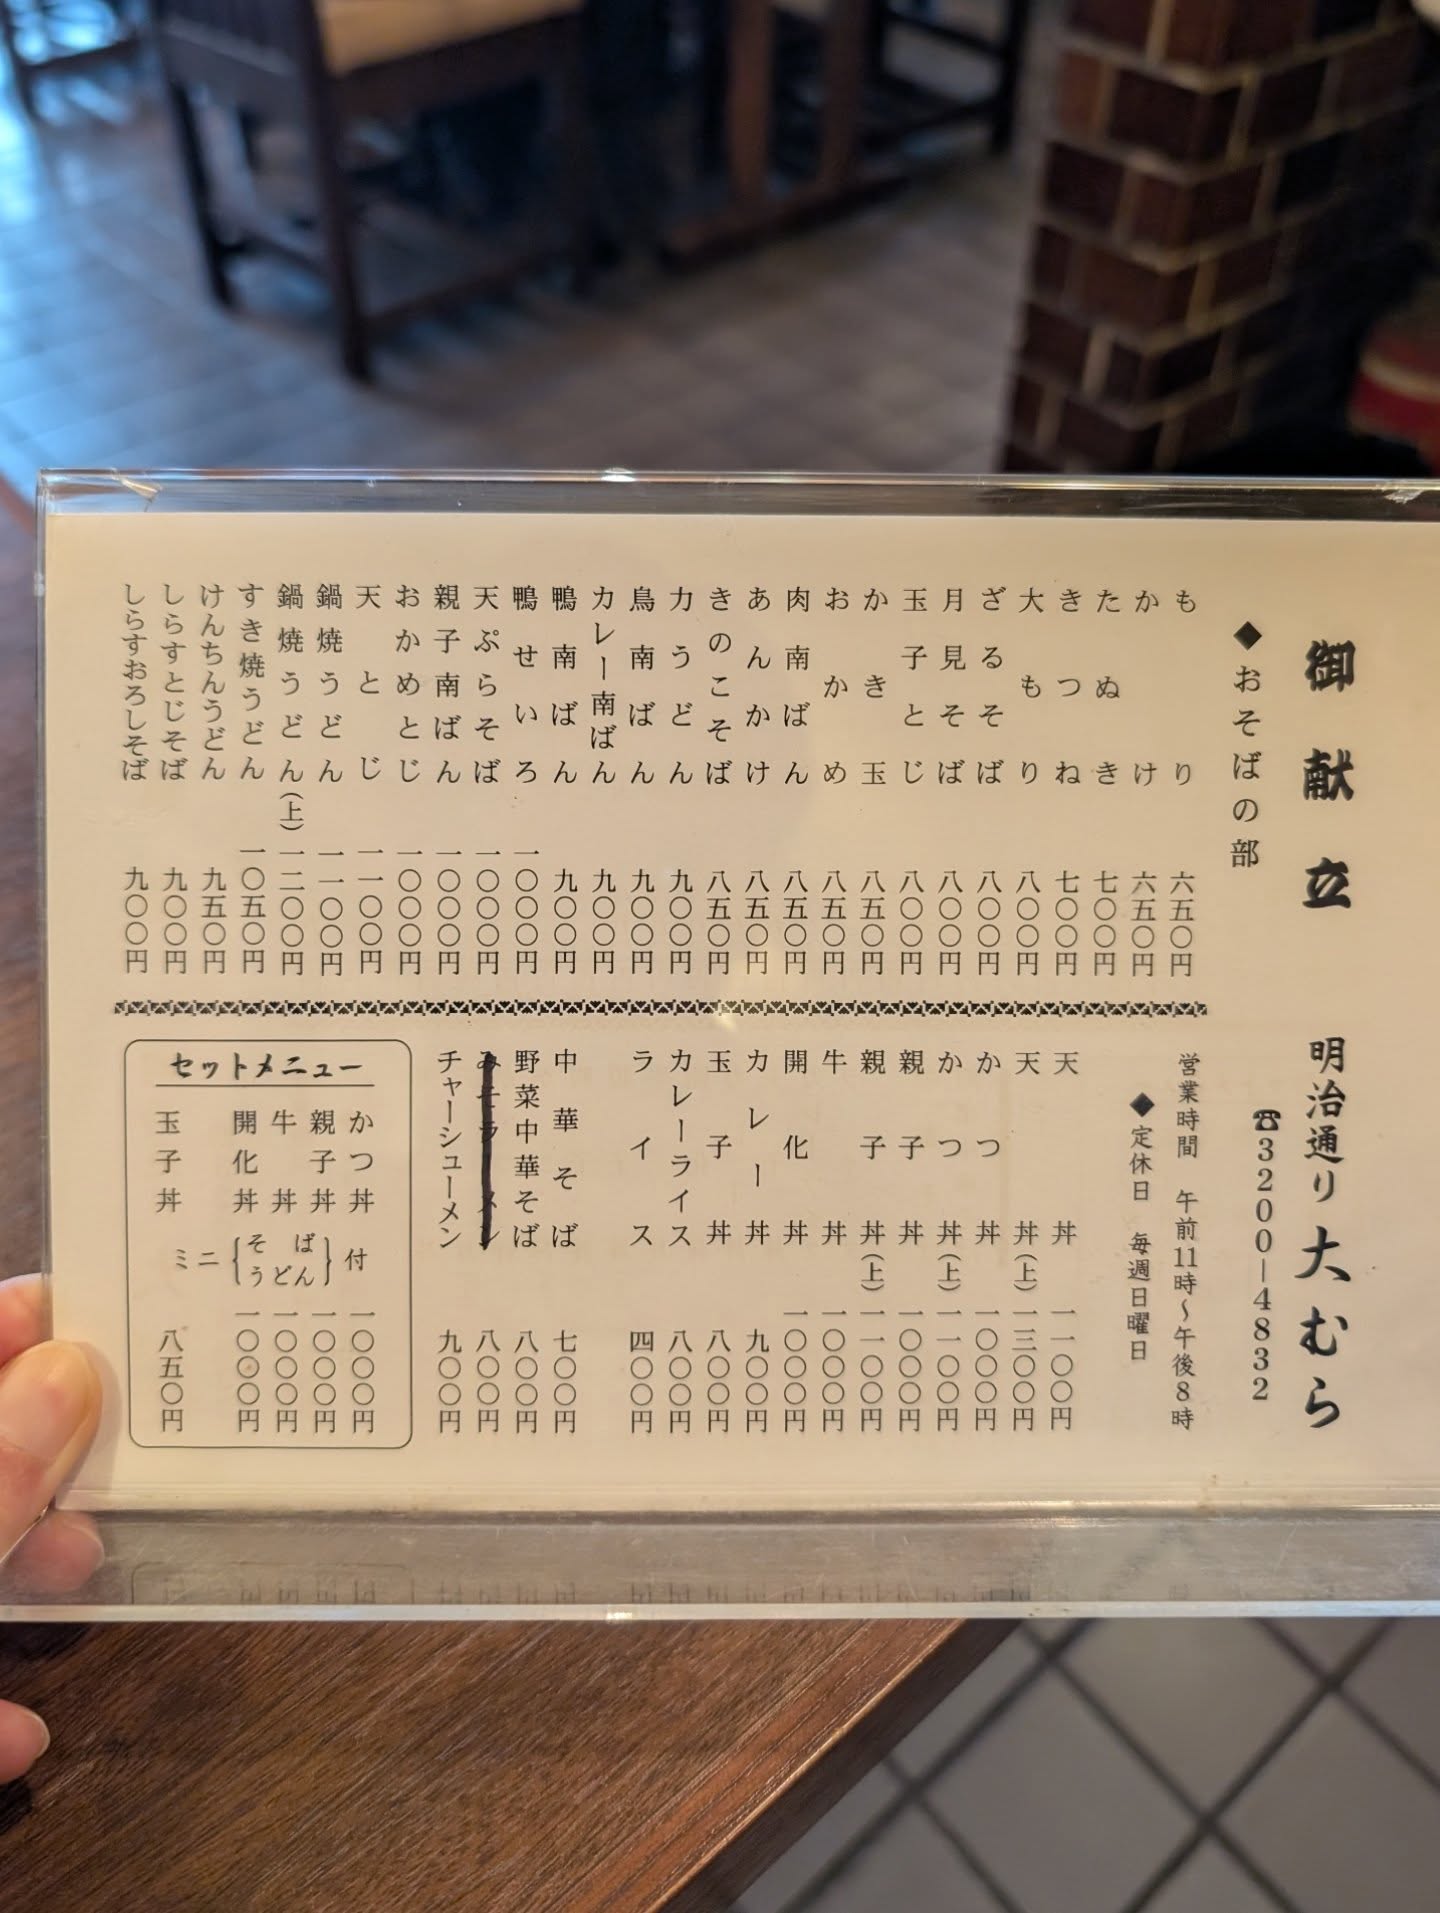 御献立
◆おそばの部
もり 六五〇円
かけ 六五〇円
たぬき 七〇〇円
きつね 七〇〇円
大もり 八〇〇円
ざるそば 八〇〇円
月見そば 八〇〇円
玉子とじ 八〇〇円
かき玉 八五〇円
おかめ 八五〇円
肉南ばん 八五〇円
あんかけ 八五〇円
きのこそば 八五〇円
力うどん 九〇〇円
鳥南ばん 九〇〇円
カレー南ばん 九〇〇円
鴨南ばん 九〇〇円
鴨せいろ 一〇〇〇円
天ぷらそば 一〇〇〇円
親子南ばん 一〇〇〇円
おかめとじ 一〇〇〇円
天とじ 一一〇〇円
鍋焼うどん 一一〇〇円
鍋焼うどん(上) 一二〇〇円
すき焼うどん 一〇五〇円
けんちんうどん 九五〇円
しらすとじそば 九〇〇円
しらすおろしそば 九〇〇円
明治通り 大むら
☎3200-4832
営業時間 午前11時〜午後8時
◆定休日 毎週日曜日
天丼 一一〇〇円
天丼(上) 一三〇〇円
かつ丼 一〇〇〇円
かつ丼(上) 一一〇〇円
親子丼 一〇〇〇円
親子丼(上) 一一〇〇円
牛丼 一〇〇〇円
開化丼 一〇〇〇円
カレー丼 九〇〇円
玉子丼 八〇〇円
カレーライス 八〇〇円
ライス 四〇〇円
中華そば 七〇〇円
野菜中華そば 八〇〇円
みそラーメン 八〇〇円
チャーシューメン 九〇〇円
セットメニュー
かつ丼 一〇〇〇円
親子丼 一〇〇〇円
牛丼 一〇〇〇円
開化丼 一〇〇〇円
玉子丼 八五〇円
ミニ{そば うどん}付